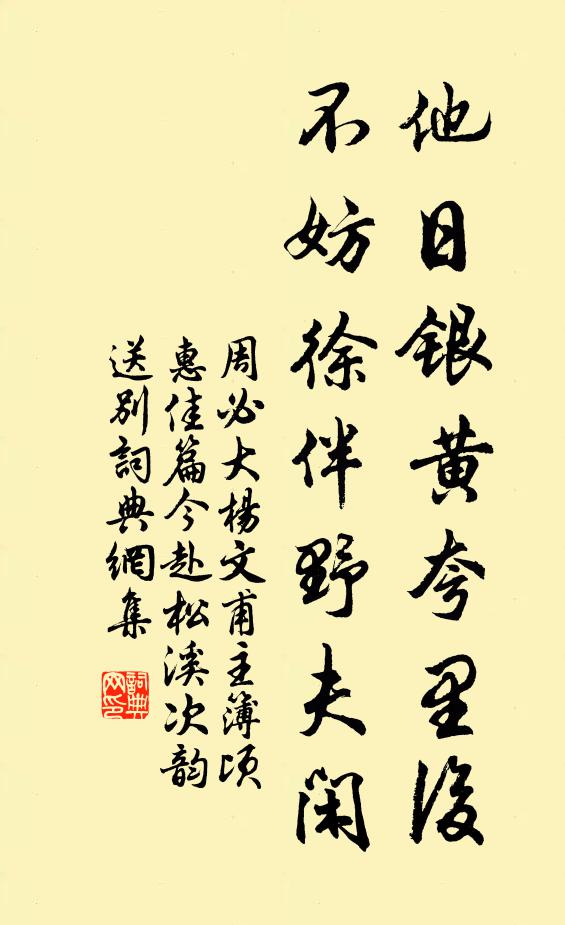 他日銀黄夸里後
不妨徐伴野夫閑
周必大楊文甫主簿頃
惠佳篇今赴松溪次韵
送别詞典網集
詞典網印